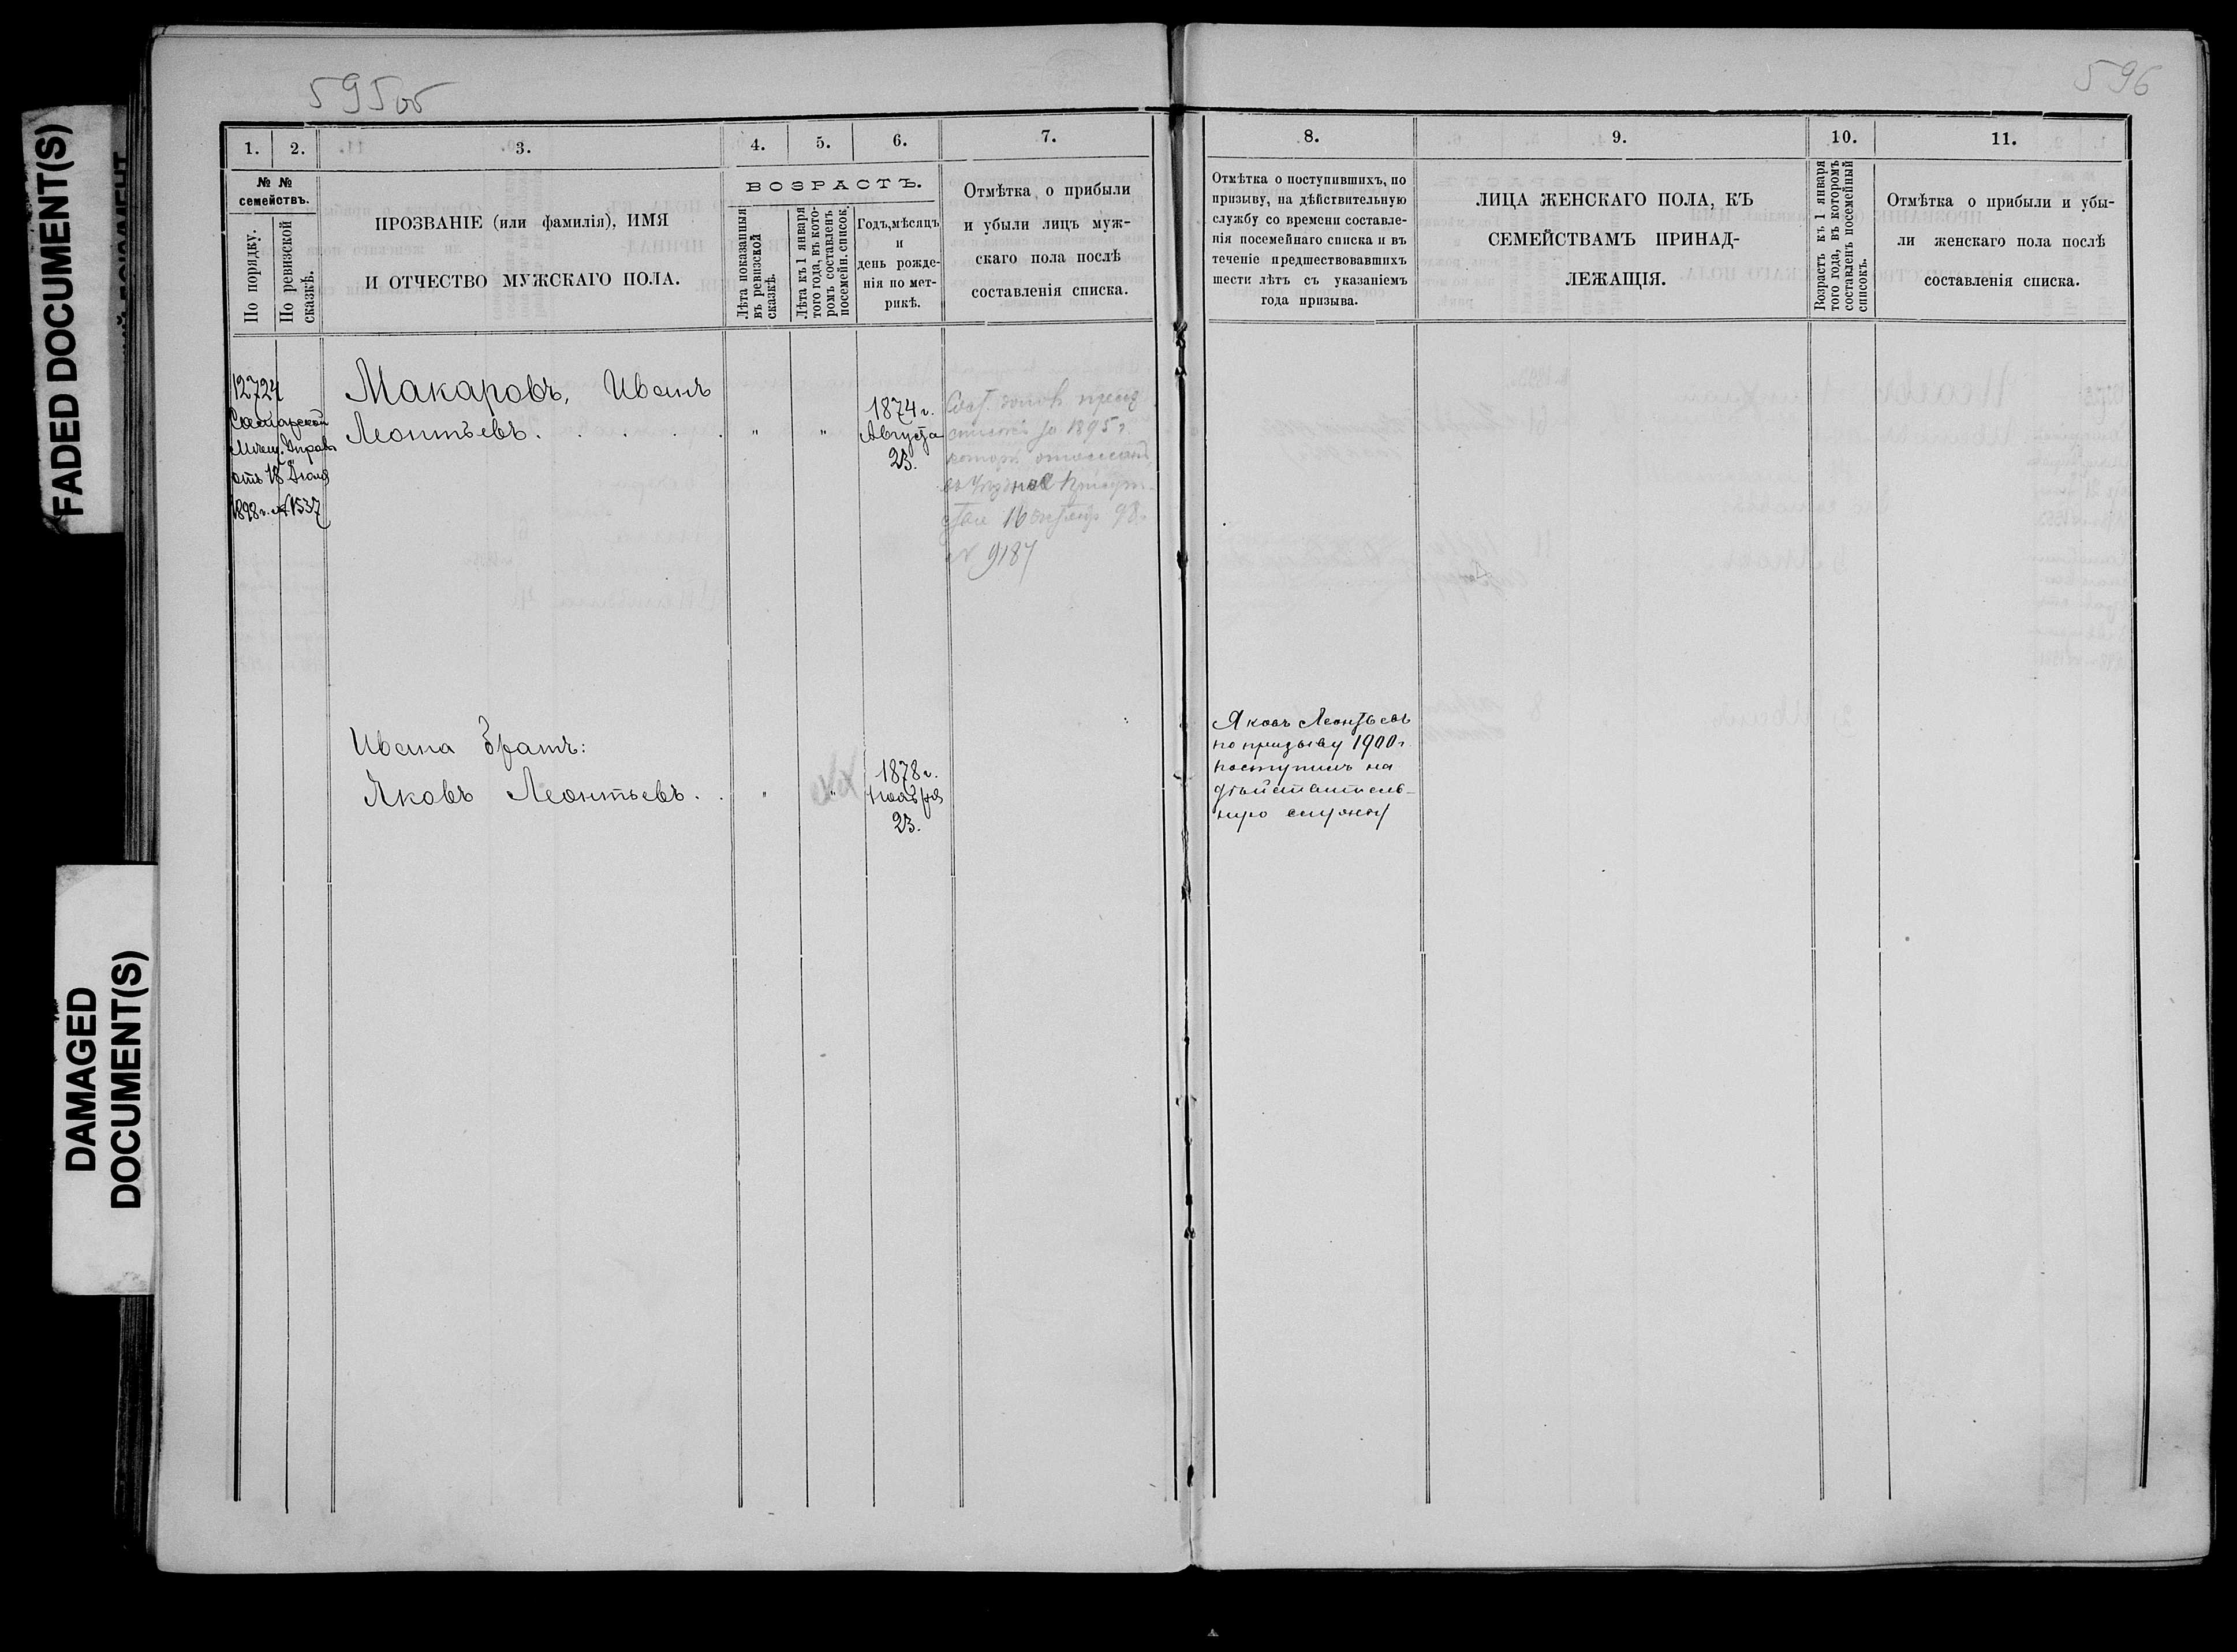 FADED DOCUMENT(S)
DAMAGED
DOCUMENT(S)
595об
596
1.
2.
3.
4.
5.
6.
7.
№ №
семействъ.
По порядку.
По ревизской
сказкѣ.
ПРОЗВАНІЕ (или фамилія), ИМЯ
И ОТЧЕСТВО МУЖСКАГО ПОЛА.
ВОЗРАСТЪ.
Лѣта показанныя
въ ревизской
сказкѣ.
Лѣта къ 1 января
того года, въ кото-
ромъ составленъ
посемейн. список.
Годъ, мѣсяцъ
и
день рожде-
нія по мет-
рикѣ.
Отмѣтка о прибыли
и убыли лицъ муж-
скаго пола послѣ
составленія списка.
8.
9.
10.
11.
Отмѣтка о поступившихъ, по
призыву, на дѣйствительную
службу со времени составле-
нія посемейнаго списка и въ
теченіе предшествовавшихъ
шести лѣтъ съ указаніемъ
года призыва.
ЛИЦА ЖЕНСКАГО ПОЛА, КЪ
СЕМЕЙСТВАМЪ ПРИНАД-
ЛЕЖАЩІЯ.
Возрастъ къ 1 января
того года, въ которомъ
составленъ посемейный
списокъ.
Отмѣтка о прибыли и убы-
ли женскаго пола послѣ
составленія списка.
12724
Самарской
Мѣщ. Управы
отъ 18
1898 г. № 1537
Макаровъ, Иванъ
Леонтьевъ.
" "
1874 г.
Августа
23.
списокъ 1895 г.
16 98 г.
№ 9187
Ивана братъ:
Яковъ Леонтьевъ.
" "
1878 г.
Ноября
23.
Яковъ Леонтьевъ
по призыву 1900 г.
поступилъ на
дѣйствитель-
ную службу